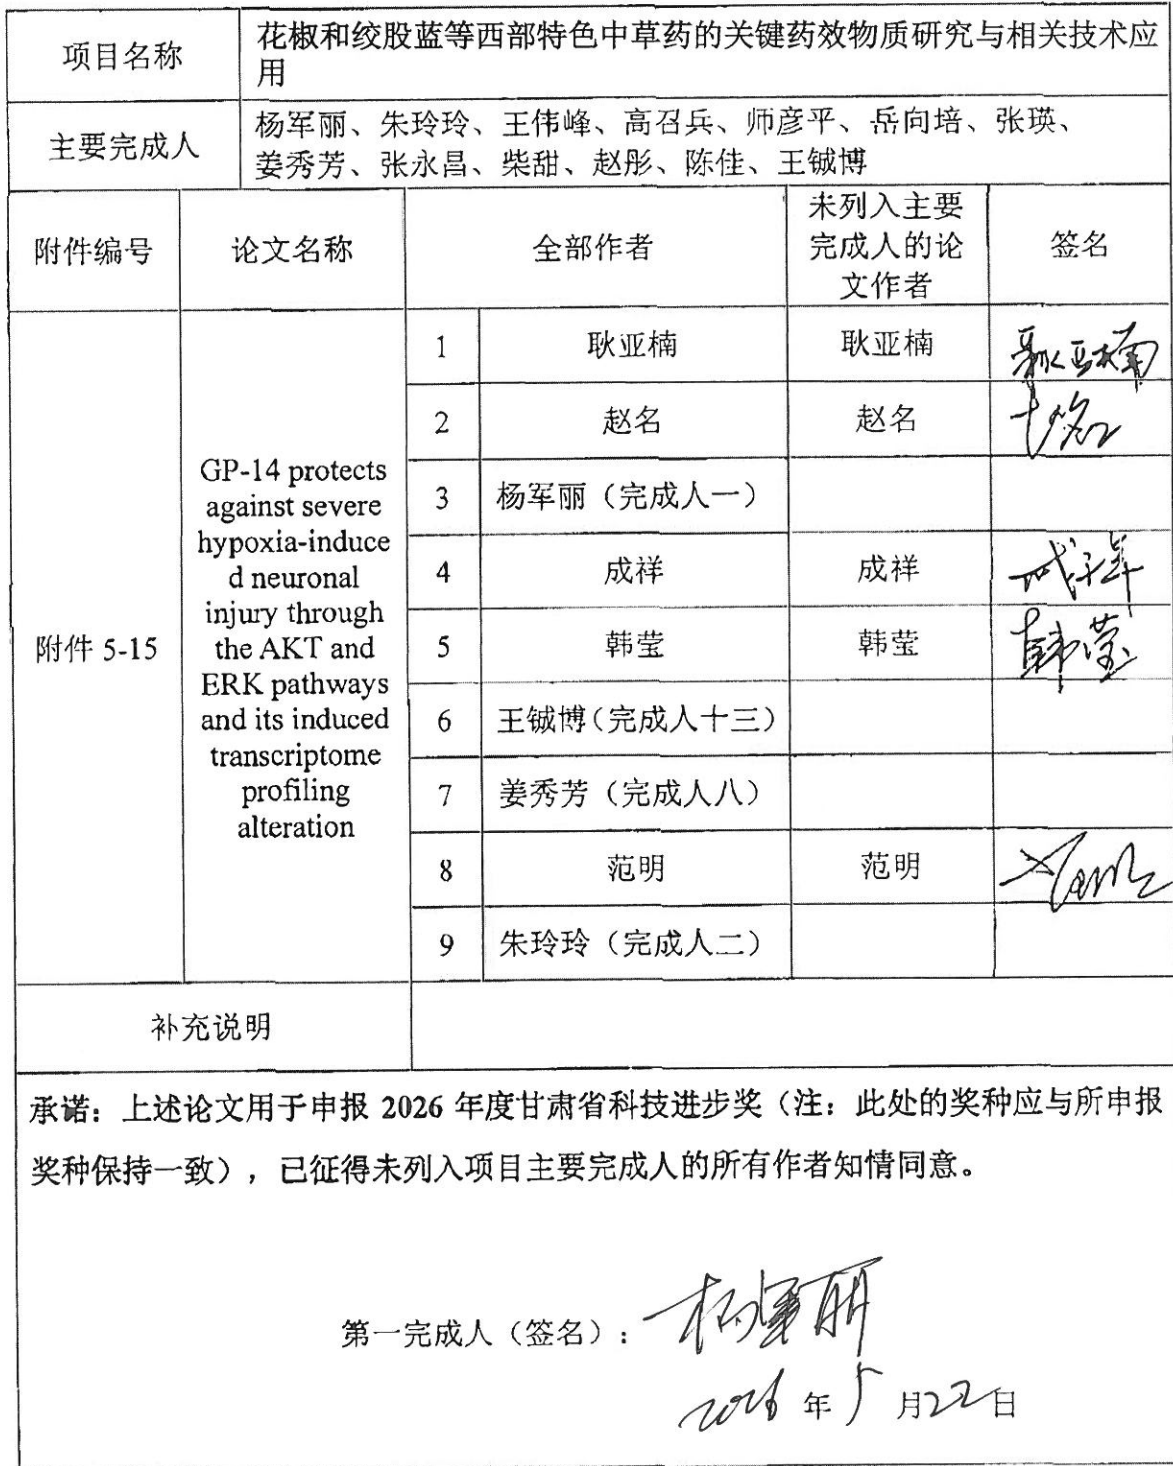 项目名称
花椒和绞股蓝等西部特色中草药的关键药效物质研究与相关技术应
用
主要完成人
杨军丽、朱玲玲、王伟峰、高召兵、师彦平、岳向培、张瑛、
姜秀芳、张永昌、柴甜、赵彤、陈佳、王铖博
附件编号
论文名称
全部作者
未列入主要
完成人的论
文作者
签名
附件 5-15
GP-14 protects
against severe
hypoxia-induce
d neuronal
injury through
the AKT and
ERK pathways
and its induced
transcriptome
profiling
alteration
1 耿亚楠 耿亚楠 耿亚楠
2 赵名 赵名
3 杨军丽（完成人一）
4 成祥 成祥 成祥
5 韩莹 韩莹 韩莹
6 王铖博（完成人十三）
7 姜秀芳（完成人八）
8 范明 范明
9 朱玲玲（完成人二）
补充说明
承诺：上述论文用于申报 2026 年度甘肃省科技进步奖（注：此处的奖种应与所申报
奖种保持一致），已征得未列入项目主要完成人的所有作者知情同意。
第一完成人（签名）：杨军丽
2026 年 5 月 22 日